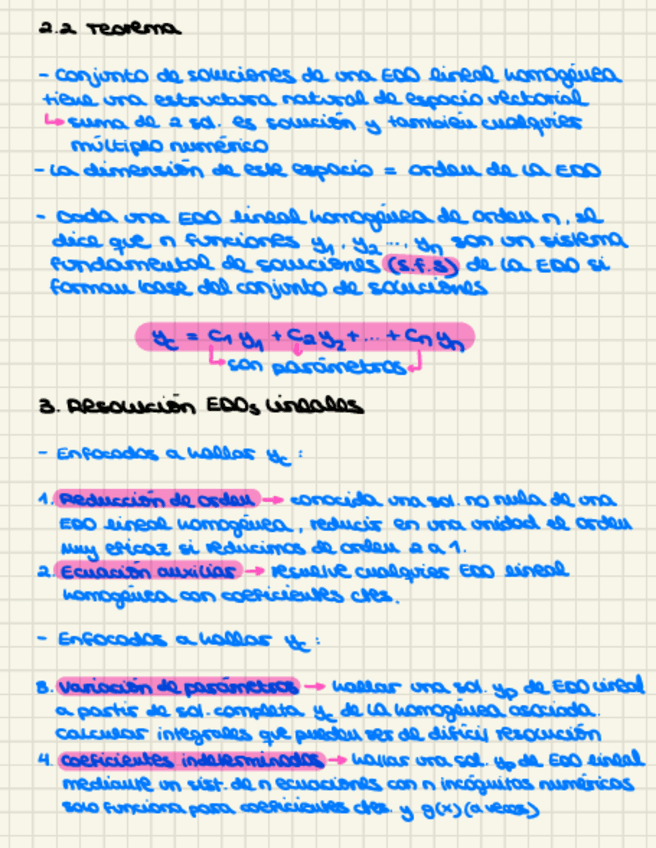 2.2 Teorema
- Conjunto de soluciones de una EDO lineal homogénea
tiene una estructura natural de espacio vectorial
↳ suma de 2 sol. es solución y también cualquier
múltiplo numérico
- La dimensión de este espacio = orden de la EDO
- Dada una EDO lineal homogénea de orden n, se
dice que n funciones y₁, y₂ ..., yₙ son un sistema
fundamental de soluciones (s.f.s) de la EDO si
forman base del conjunto de soluciones
y_c = C₁ y₁ + C₂ y₂ + ... + Cₙ yₙ
son parámetros
3. Resolución EDOs Lineales
- Enfocados a hallar y_c :
1. Reducción de orden → conocida una sol. no nula de una
EDO lineal homogénea, reducir en una unidad el orden
muy eficaz si reducimos de orden 2 a 1.
2. Ecuación auxiliar → resuelve cualquier EDO lineal
homogénea con coeficientes ctes.
- Enfocados a hallar y_c :
3. Variación de parámetros → hallar una sol. y_p de EDO lineal
a partir de sol. completa y_c de la homogénea asociada.
calcular integrales que pueden ser de difícil resolución
4. Coeficientes indeterminados → hallar una sol. y_p de EDO lineal
mediante un sist. de n ecuaciones con n incógnitas numéricas
solo funciona para coeficientes ctes. y g(x) (a veces)